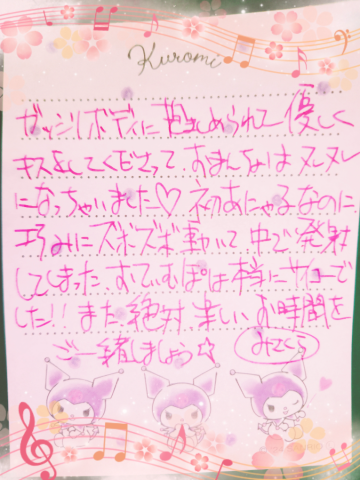 Kuromi
ガッシリボディに抱きしめられて優しく
キスをしてくださって、おまんちょはヌレヌレ
になっちゃいました♡ 初めあにゃるなのに
巧みにズボズボ動いて中で発射
してしまった、すてぃむぽは本当にサイコーで
した!! また絶対、楽しいお時間を
ご一緒しましょう☆